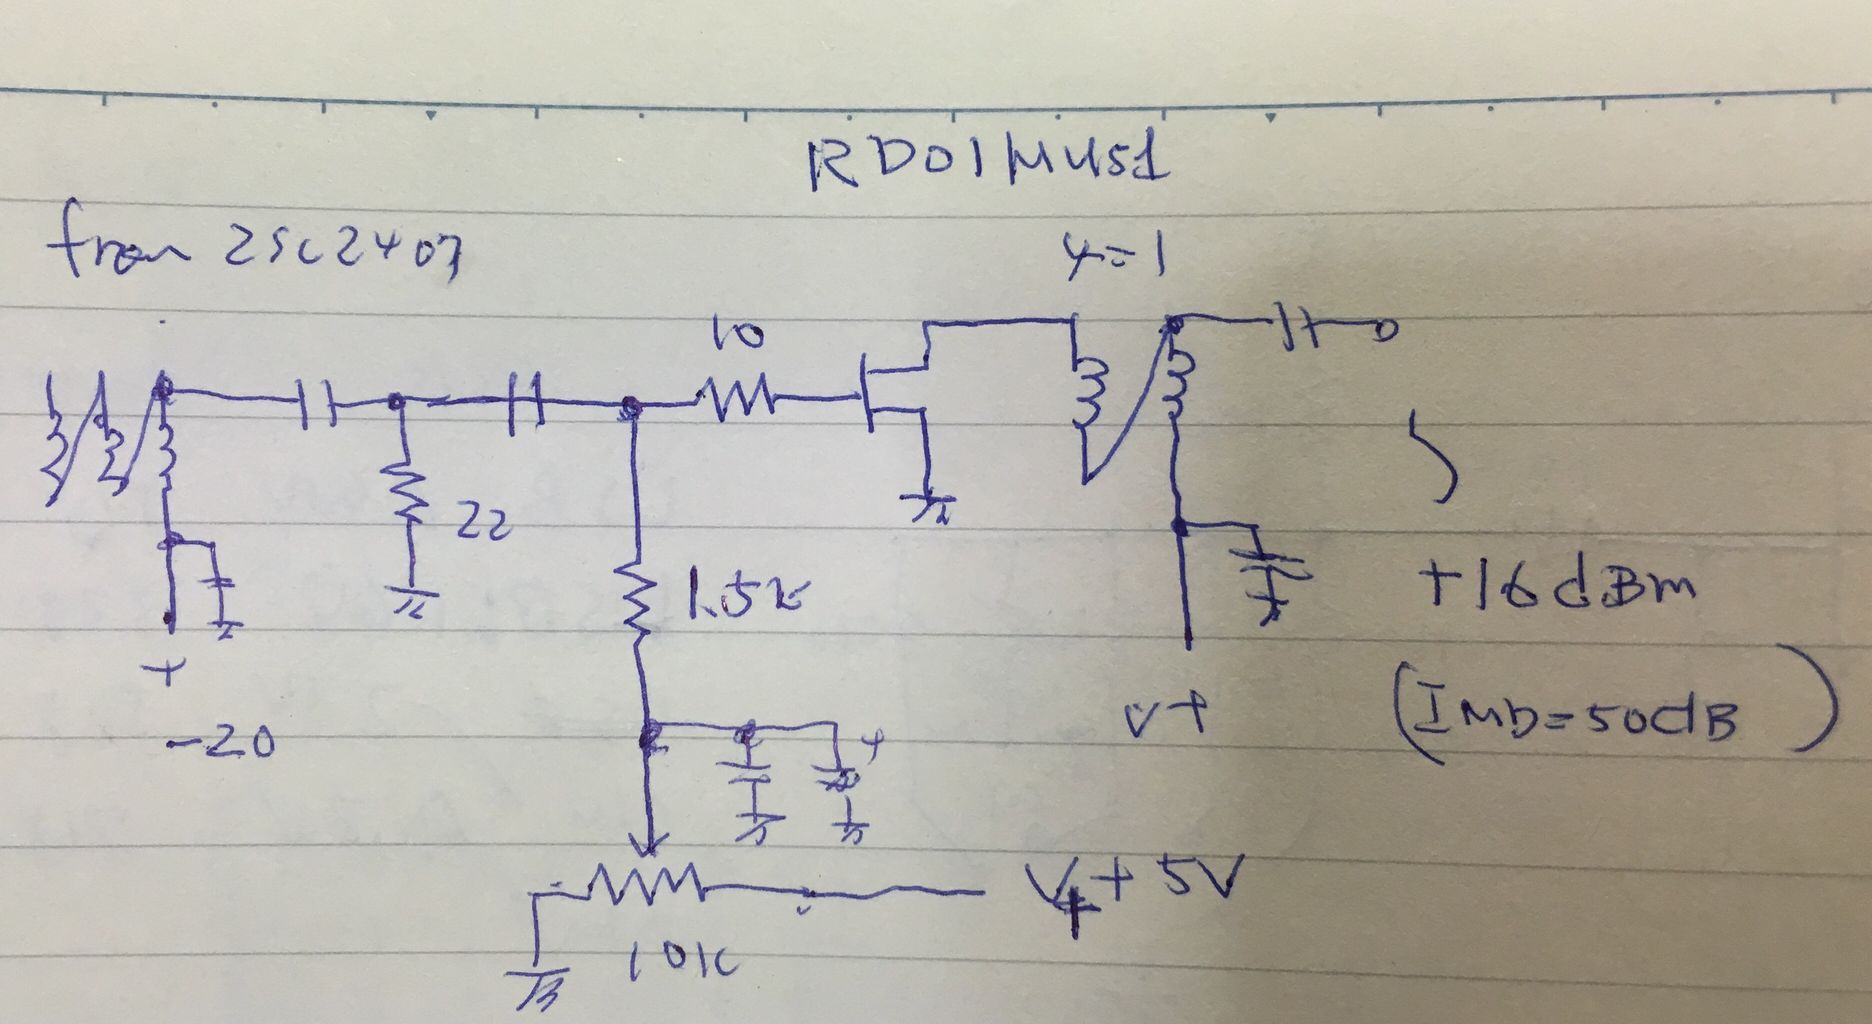 RD01MUS1
from 2SC2407
4=1
10
22
1.5K
+16dBm
+
V+
(IMD=50dB)
-20
+
V+ + 5V
10K